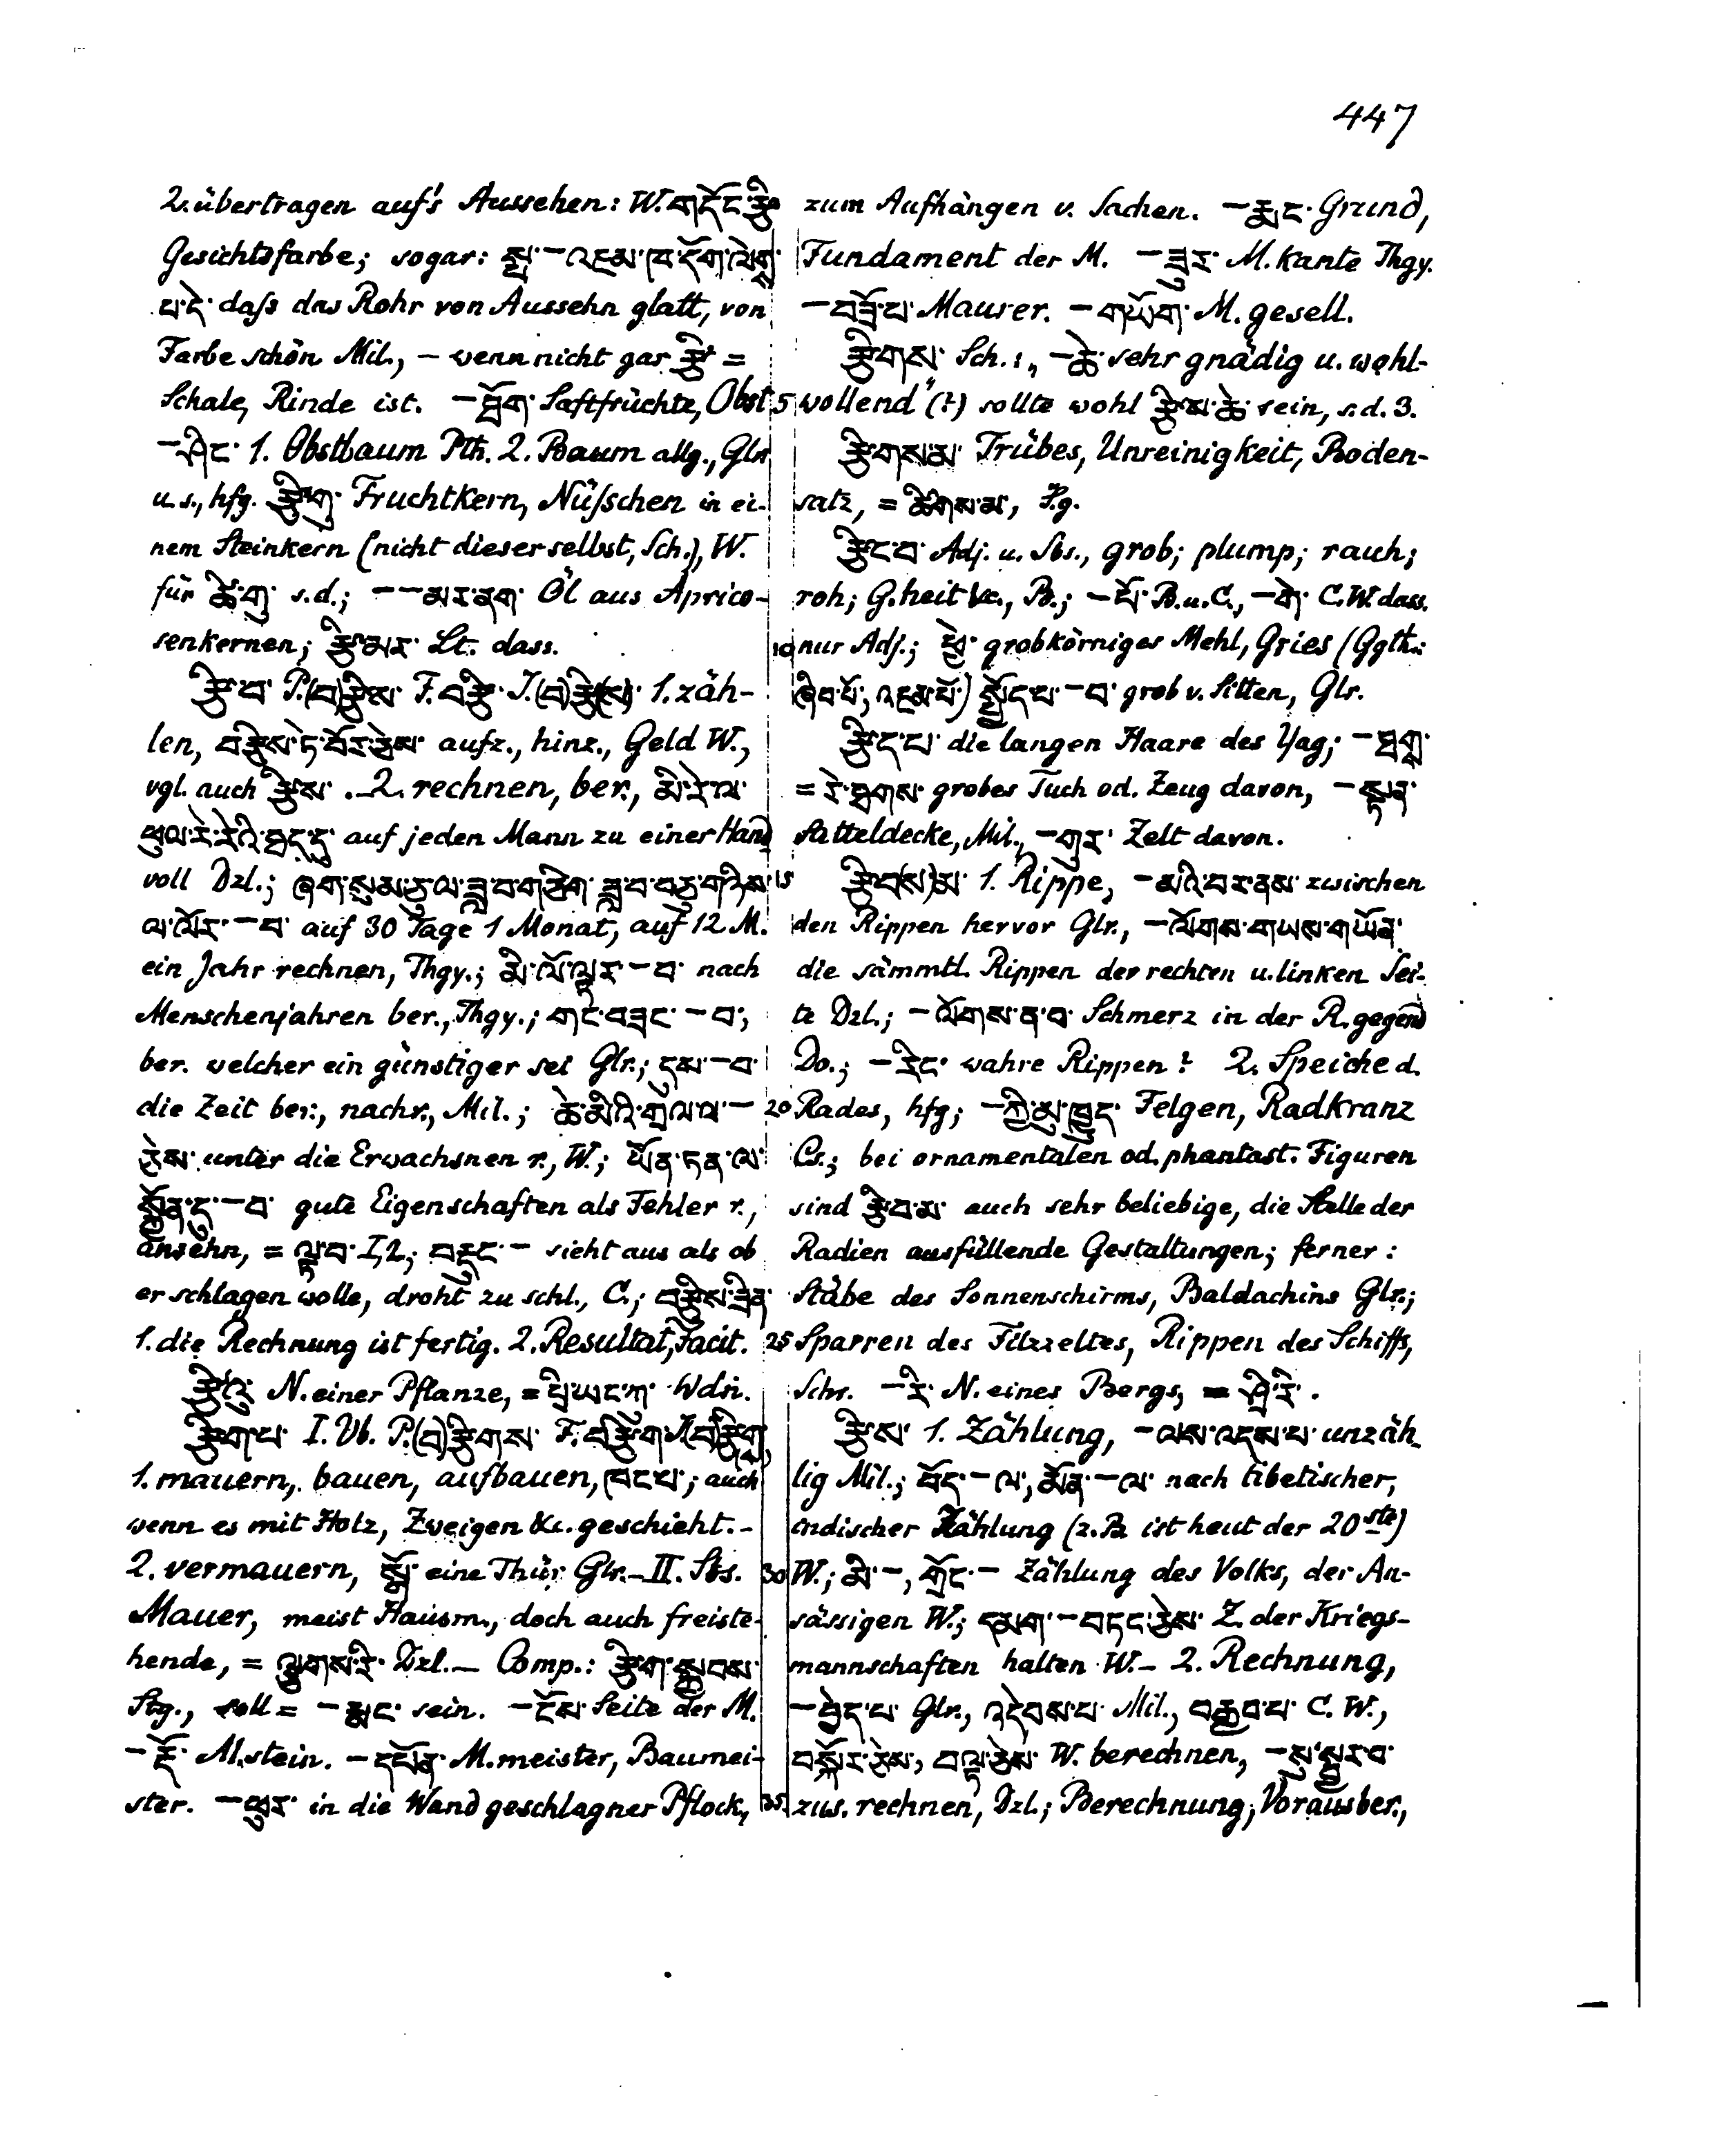 447
2. übertragen auf's Aussehen: W. གདོང་རྩི་
Gesichtsfarbe; sogar: སྨྱུ་ — འཇམ་ཁ་དོག་ལེགས་
པ་དེ་ daſs das Rohr von Aussehn glatt, von
Farbe schön Mil., — wenn nicht gar རྩི་ =
Schale, Rinde ist. — ཐོག་ Saftfrüchte, Obst
— ཤིང་ 1. Obstbaum Pth. 2. Baum allg., Glr.
u. s., hfg. རྩི་གུ་ Fruchtkern, Nüſschen in ei-
nem Steinkern (nicht dieser selbst, Sch.), W.
für ཚི་གུ་ s. d.; — — མར་ནག་ Öl aus Aprico-
senkernen; རྩི་མར་ Lt. dass.
རྩི་བ་ P. (བ)རྩིས་ F. བརྩི་ I. (བ)རྩི(ས) 1. zäh-
len, བརྩིས་ཏེ་བོར་ཅེས་ aufz., hinz., Geld W.,
vgl. auch རྩིས་. — 2. rechnen, ber., མི་རེ་ལ་
ཕུལ་རེ་རེའི་ཐད་དུ་ auf jeden Mann zu einer Hand
voll Dzl.; ཞག་སུམ་ཅུ་ལ་ཟླ་བ་གཅིག་ ཟླ་བ་བཅུ་གཉིས་
ལ་ལོར་ — བ་ auf 30 Tage 1 Monat, auf 12 M.
ein Jahr rechnen, Thgy.; མི་ལོ་ལྟར་ — བ་ nach
Menschenjahren ber., Thgy.; གང་བཟང་ — བ་,
ber. welcher ein günstiger sei Glr.; དུས་ — བ་
die Zeit ber., nachr., Mil.; ཆེ་མིའི་གྲལ་ལ་ —
ཅེས་ unter die Erwachsnen r., W.; ཡོན་ཏན་ལ་
སྐྱོན་དུ་ — བ་ gute Eigenschaften als Fehler r.,
ansehn, = ལྟ་བ་ I, 2; བརྡུང་ — sieht aus als ob
er schlagen wolle, droht zu schl., C.; བརྩིས་ཟིན་
1. die Rechnung ist fertig. 2. Resultat, Facit.
N. einer Pflanze, = བྱི་ཡང་ཀུ་ Wdn.
རྩིག་པ་ I. Vb. P. (བ)རྩིགས་ F. བརྩིག་ I. (བ)རྩིག(ས)
1. mauern, bauen, aufbauen, ཁང་པ་; auch
wenn es mit Holz, Zweigen &c. geschieht. —
2. vermauern, སྒོ་ eine Thür Glr. — II. Sbs.
Mauer, meist Hausm., doch auch freiste-
hende, = ལྕགས་རི་ Dzl. — Comp.: རྩིག་སྐྱབས་
Stg., soll = — རྨང་ sein. — ངོས་ Seite der M.
— རྡོ་ M.stein. — དཔོན་ M.meister, Baumei-
ster. — ཕུར་ in die Wand geschlagner Pflock,
zum Aufhängen v. Sachen. — རྨང་ Grund,
Fundament der M. — ཟུར་ M. kante Thgy.
— བཟོ་པ་ Maurer. — གཡོག་ M. gesell.
རྩིགས་ Sch.: „ — ཆེ་ sehr gnädig u. wohl-
5 wollend" (?) sollte wohl རྩིས་ཆེ་ sein, s. d. 3.
རྩིགསམ་ Trübes, Unreinigkeit, Boden-
satz, = ཚིགས་མ་, Fg.
རྩིང་བ་ Adj. u. Sbs., grob; plump; rauh;
roh; G.heit &c., B.; — པོ་ B. u. C., — གེ་ C. W. dass.
10 nur Adj.; ཕྱེ་ grobkörniges Mehl, Gries (Ggth.:
ཞིབ་པོ་, འཇམ་པོ་) སྤྱོད་པ་ — བ་ grob v. Sitten, Glr.
རྩིད་པ་ die langen Haare des Yag; — ཐགས་
= རེ་ཐགས་ grobes Tuch od. Zeug davon, — སྟན་
Satteldecke, Mil., — གུར་ Zelt davon.
15 རྩིབ(ས)མ་ 1. Rippe, — མའི་བར་ནས་ zwischen
den Rippen hervor Glr., — ལོགས་གཡས་གཡོན་
die sämmtl. Rippen der rechten u. linken Sei-
te Dzl.; — ལོགས་ན་བ་ Schmerz in der R. gegend
Do.; — རིང་ wahre Rippen? 2. Speiche d.
20 Rades, hfg; — ཀྱི་མུ་ཁྱུད་ Felgen, Radkranz
Cs.; bei ornamentalen od. phantast. Figuren
sind རྩིབ་མ་ auch sehr beliebige, die Stelle der
Radien ausfüllende Gestaltungen; ferner:
Stäbe des Sonnenschirms, Baldachins Glr.;
25 Sparren des Filzzeltes, Rippen des Schiffs,
Schr. — རི་ N. eines Bergs, = ཤྲི་རི་.
རྩིས་ 1. Zählung, — ལས་འདས་པ་ unzäh-
lig Mil.; བོད་ — ལ་, མོན་ — ལ་ nach tibetischer,
indischer Zählung (z. B. ist heut der 20ste)
30 W.; མི་ —, གྲོང་ — Zählung des Volks, der An-
sässigen W.; དམག་ — བཏང་ཅེས་ Z. der Kriegs-
mannschaften halten W. — 2. Rechnung,
— བྱེད་པ་ Glr., འདེབས་པ་ Mil., བརྒྱབ་པ་ C. W.,
བསྐོར་ཅེས་, བལྟ་ཅེས་ W. berechnen, — སུ་སྦྱར་བ་
35 zus. rechnen, Dzl.; Berechnung, Vorausber.,